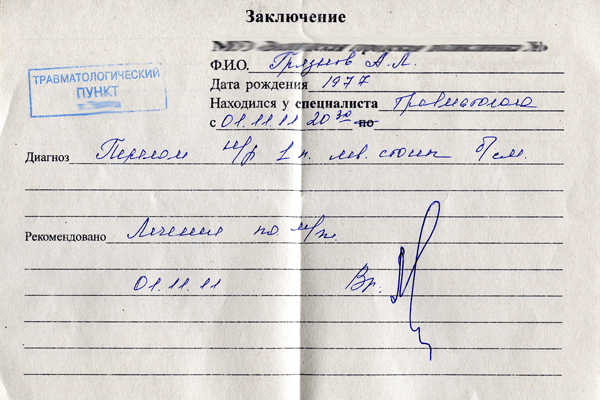 Заключение
ТРАВМАТОЛОГИЧЕСКИЙ
ПУНКТ
Ф.И.О. Грязнов А.Л.
Дата рождения 1977
Находился у специалиста травматолога
с 01.11.11 20 30 по
Диагноз Перелом н/ф 1 п. лев. стопы б/см.
Рекомендовано Лечение по м/ж.
01.11.11 Вр.